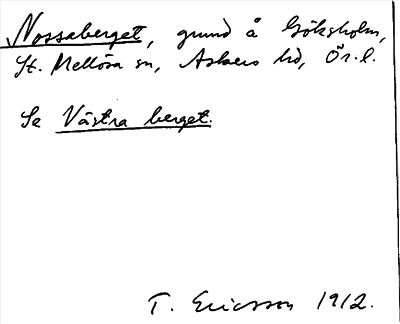 Nossaberget, grund å Göksholm,
St. Mellösa sn, Askers hd, Ör. l.
Se Västra berget.
T. Ericsson 1912.